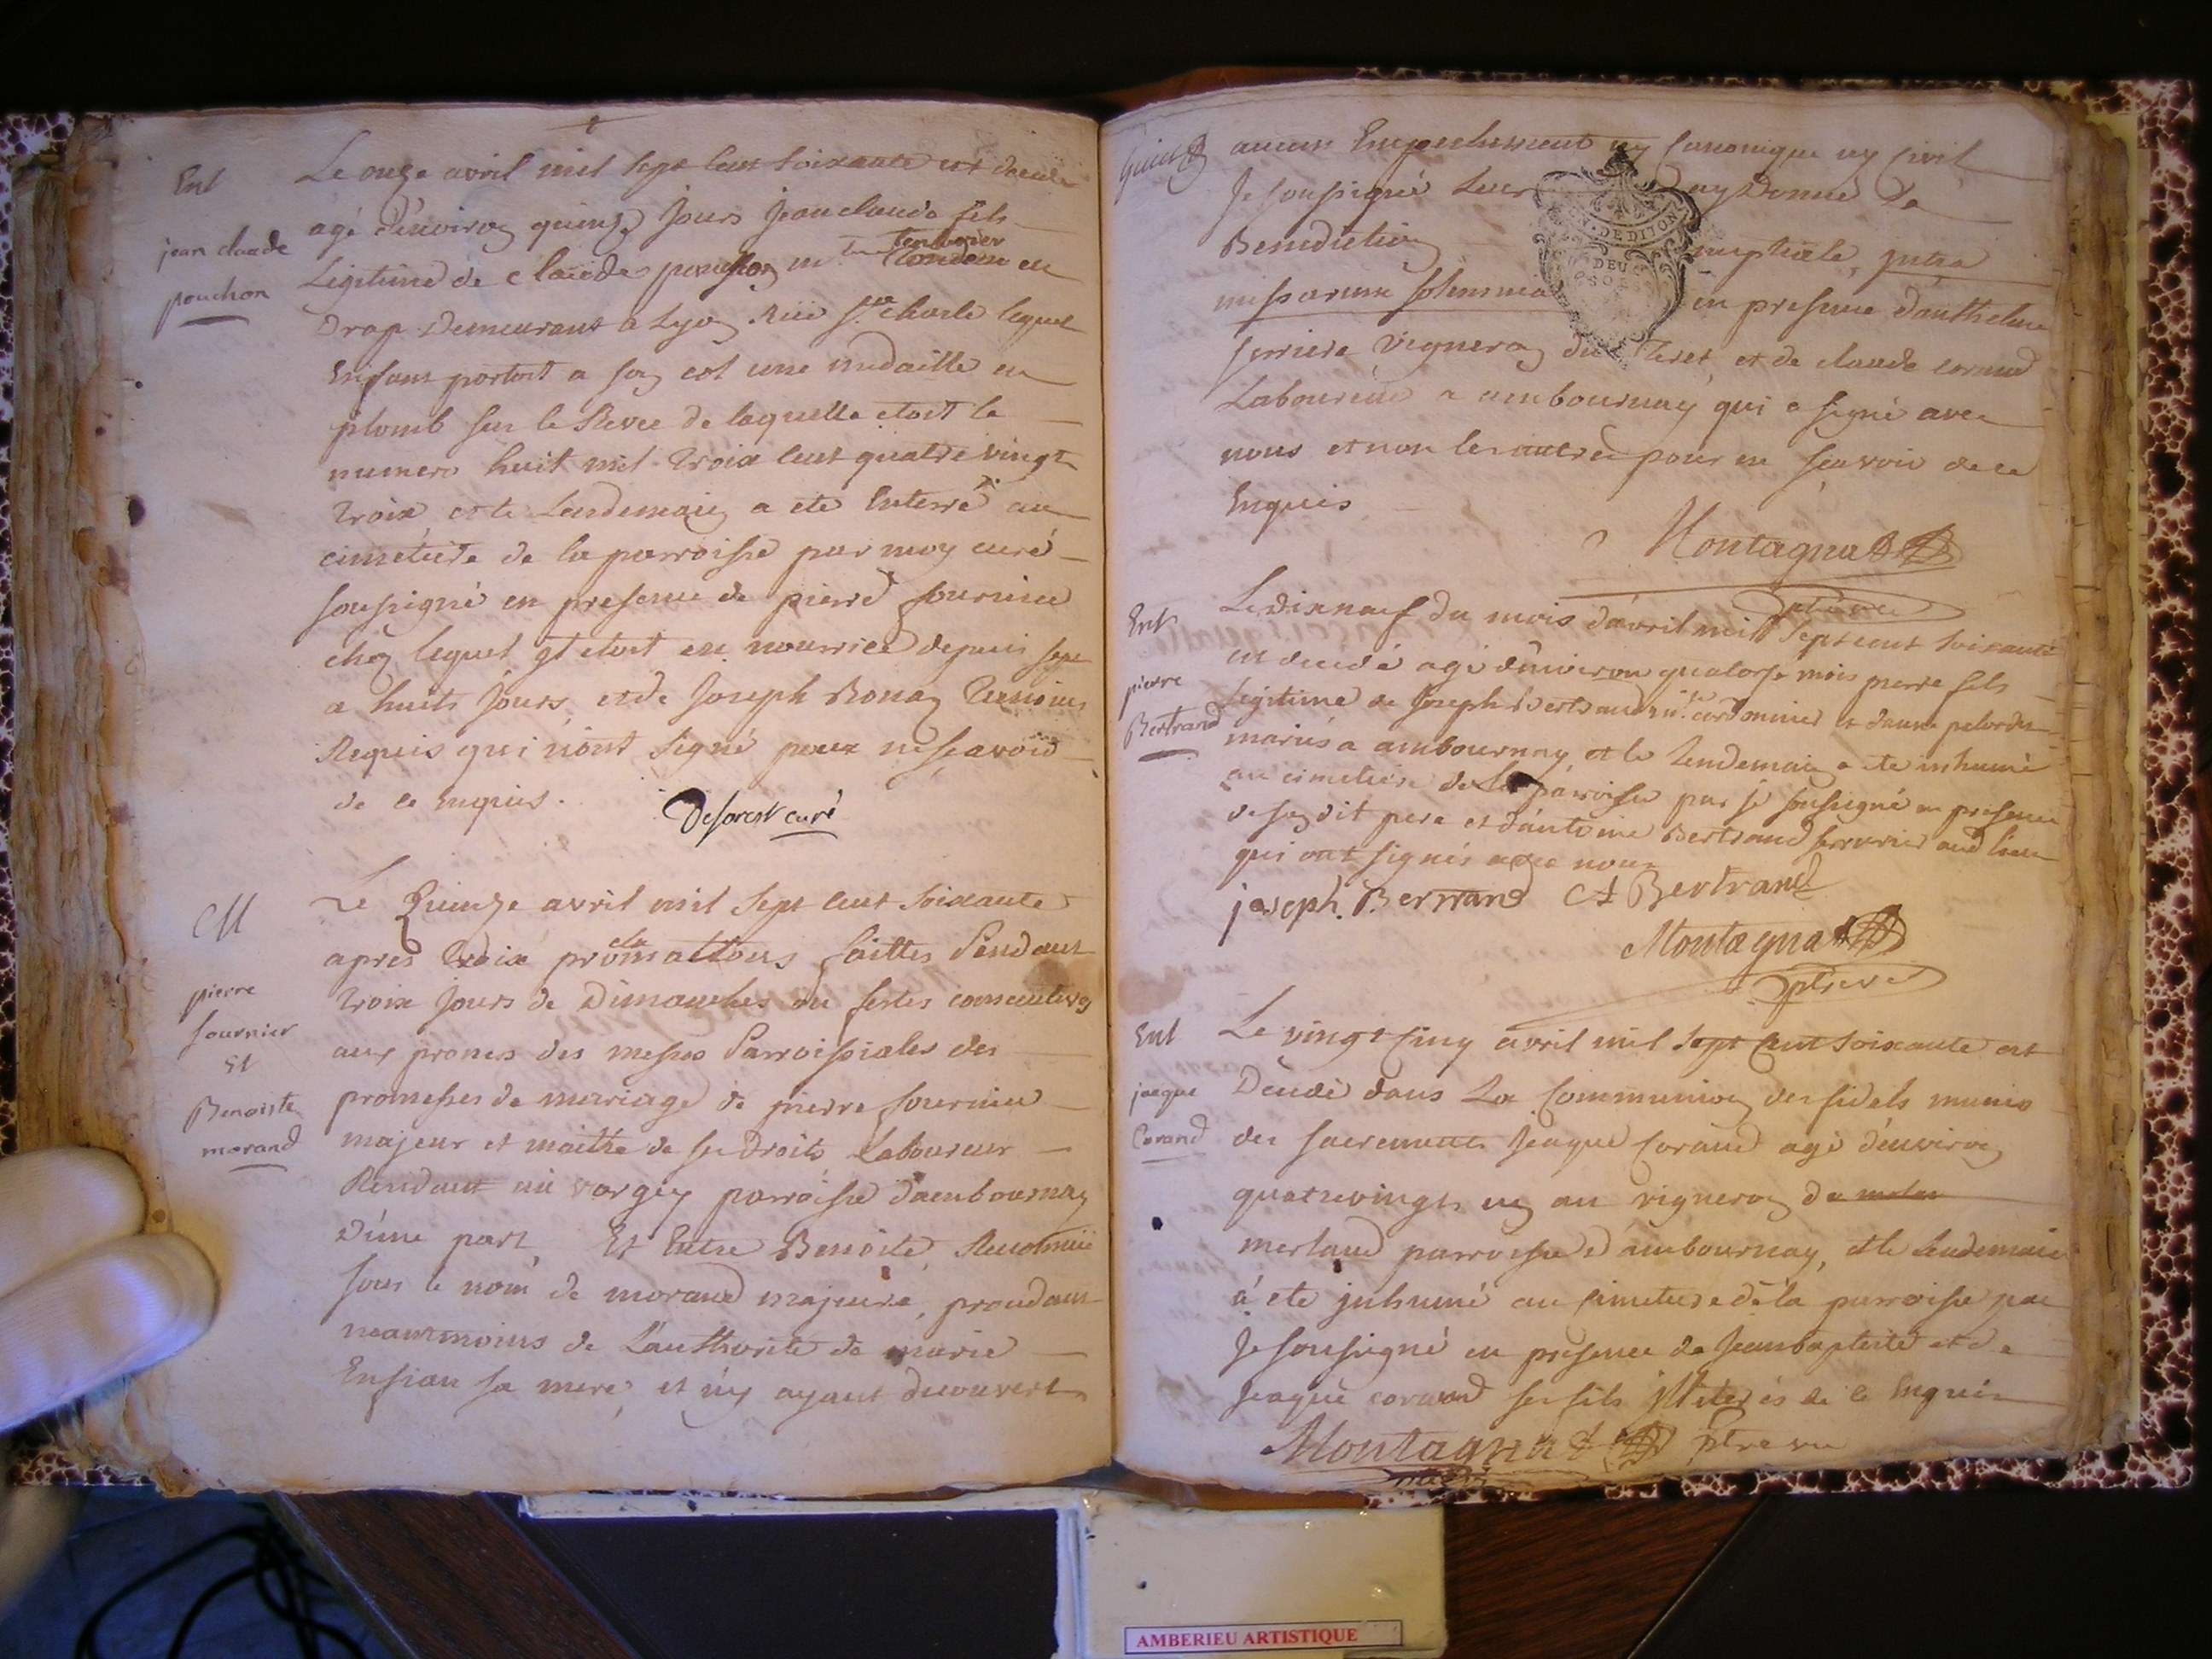 Ent
jean claude
pouchon
Le onze avril mil sept cent soixante est decedé
agé d'environ quinze jours jean claude fils
Legitime de claude pouchon
Drap Demeurant a Lyon Rüe St charle lequel
Enfant portoit a son col une medaille en
plomb sur le Revee de laquelle etoit le
numero huit mil troix cent quatre vingt
troix et le Lendemain a ete Enterré au
cimetiere de la parroisse par moy curé
soussigné en presence de pierre fournier
chez lequel jl etoit en nourrice depuis sept
a huit jours, et de Joseph Bonaz Temoins
Requis qui n'ont signé pour ne sçavoir
de ce enquis.
Deforest curé
M
pierre
fournier
Et
Benoiste
morand
Le Quinze avril mil sept cent soixante
apres troix proclamations faittes Pendant
troix jours de Dimanches ou festes consecutives
aux prones des messes Parroissiales des
promesses de mariage de pierre fournier
majeur et maitre de ses Droits Laboureur
Residant au vorgey parroisse d'ambournay
D'une part, Et Entre Benoite, Reconnüe
sous le nom de morand majeure,
neantmoins de L'authorité de marie
sa mere, et n'y ayant decouvert
aucun Empechement ny Canonique ny Civil
Je soussigné Leur ay Donné La
Benediction nuptiale, jntra
missarum solemnia en presence d'anthelme
ferriere vigneron du et de claude corand
Laboureur a ambournay qui a signé avec
nous et non les autres pour ne sçavoir de ce
Enquis
EN. DE DIJON
DEU
SOLS
Montagnat
ptre vic
Ent
pierre
Bertrand
Le dix neuf du mois d'avril mil sept cent soixante
est decedé agé d'environ quatorse mois pierre fils
Legitime de Joseph Bertrand cordonnier et
mariés a ambournay, et le Lendemain a ete inhumé
au cimetiere de la parroisse par je soussigné en presence
de son dit pere et d'antoine Bertrand serrurier aud lieu
qui ont signés avec nous
joseph. Bertrand A Bertrand
Montagnat
ptre vic
Ent
jacque
Corand
Le vingt cinq avril mil sept cent soixante est
Decedé dans La Communion des fidels munis
des sacrements Jacque Corand agé d'environ
quatrevingts un an vigneron de
merland parroisse d'ambournay, et le Lendemain
à ete jnhumé au Cimetiere de la parroisse par
Je soussigné en presence de Jeanbaptiste et de
Jacque corand ses fils jlliterés de ce Enquis
Montagnat ptre vic
AMBERIEU ARTISTIQUE